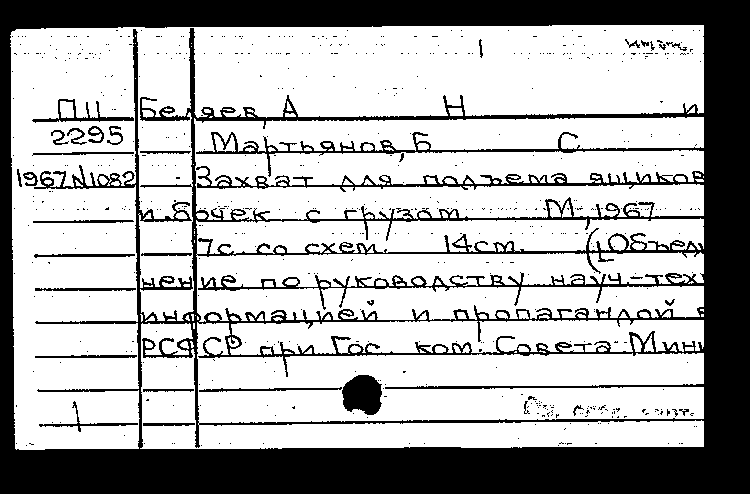 1
ПШ Беляев, А Н и
2295 Мартьянов, Б С
1967 N1082 Захват для подъема ящиков
и бочек с грузом. М., 1967
7с. со схем. 14см. ([Объеди
нение по руководству науч.-техн
информацией и пропагандой в
РСФСР при Гос. ком. Совета Мини
1